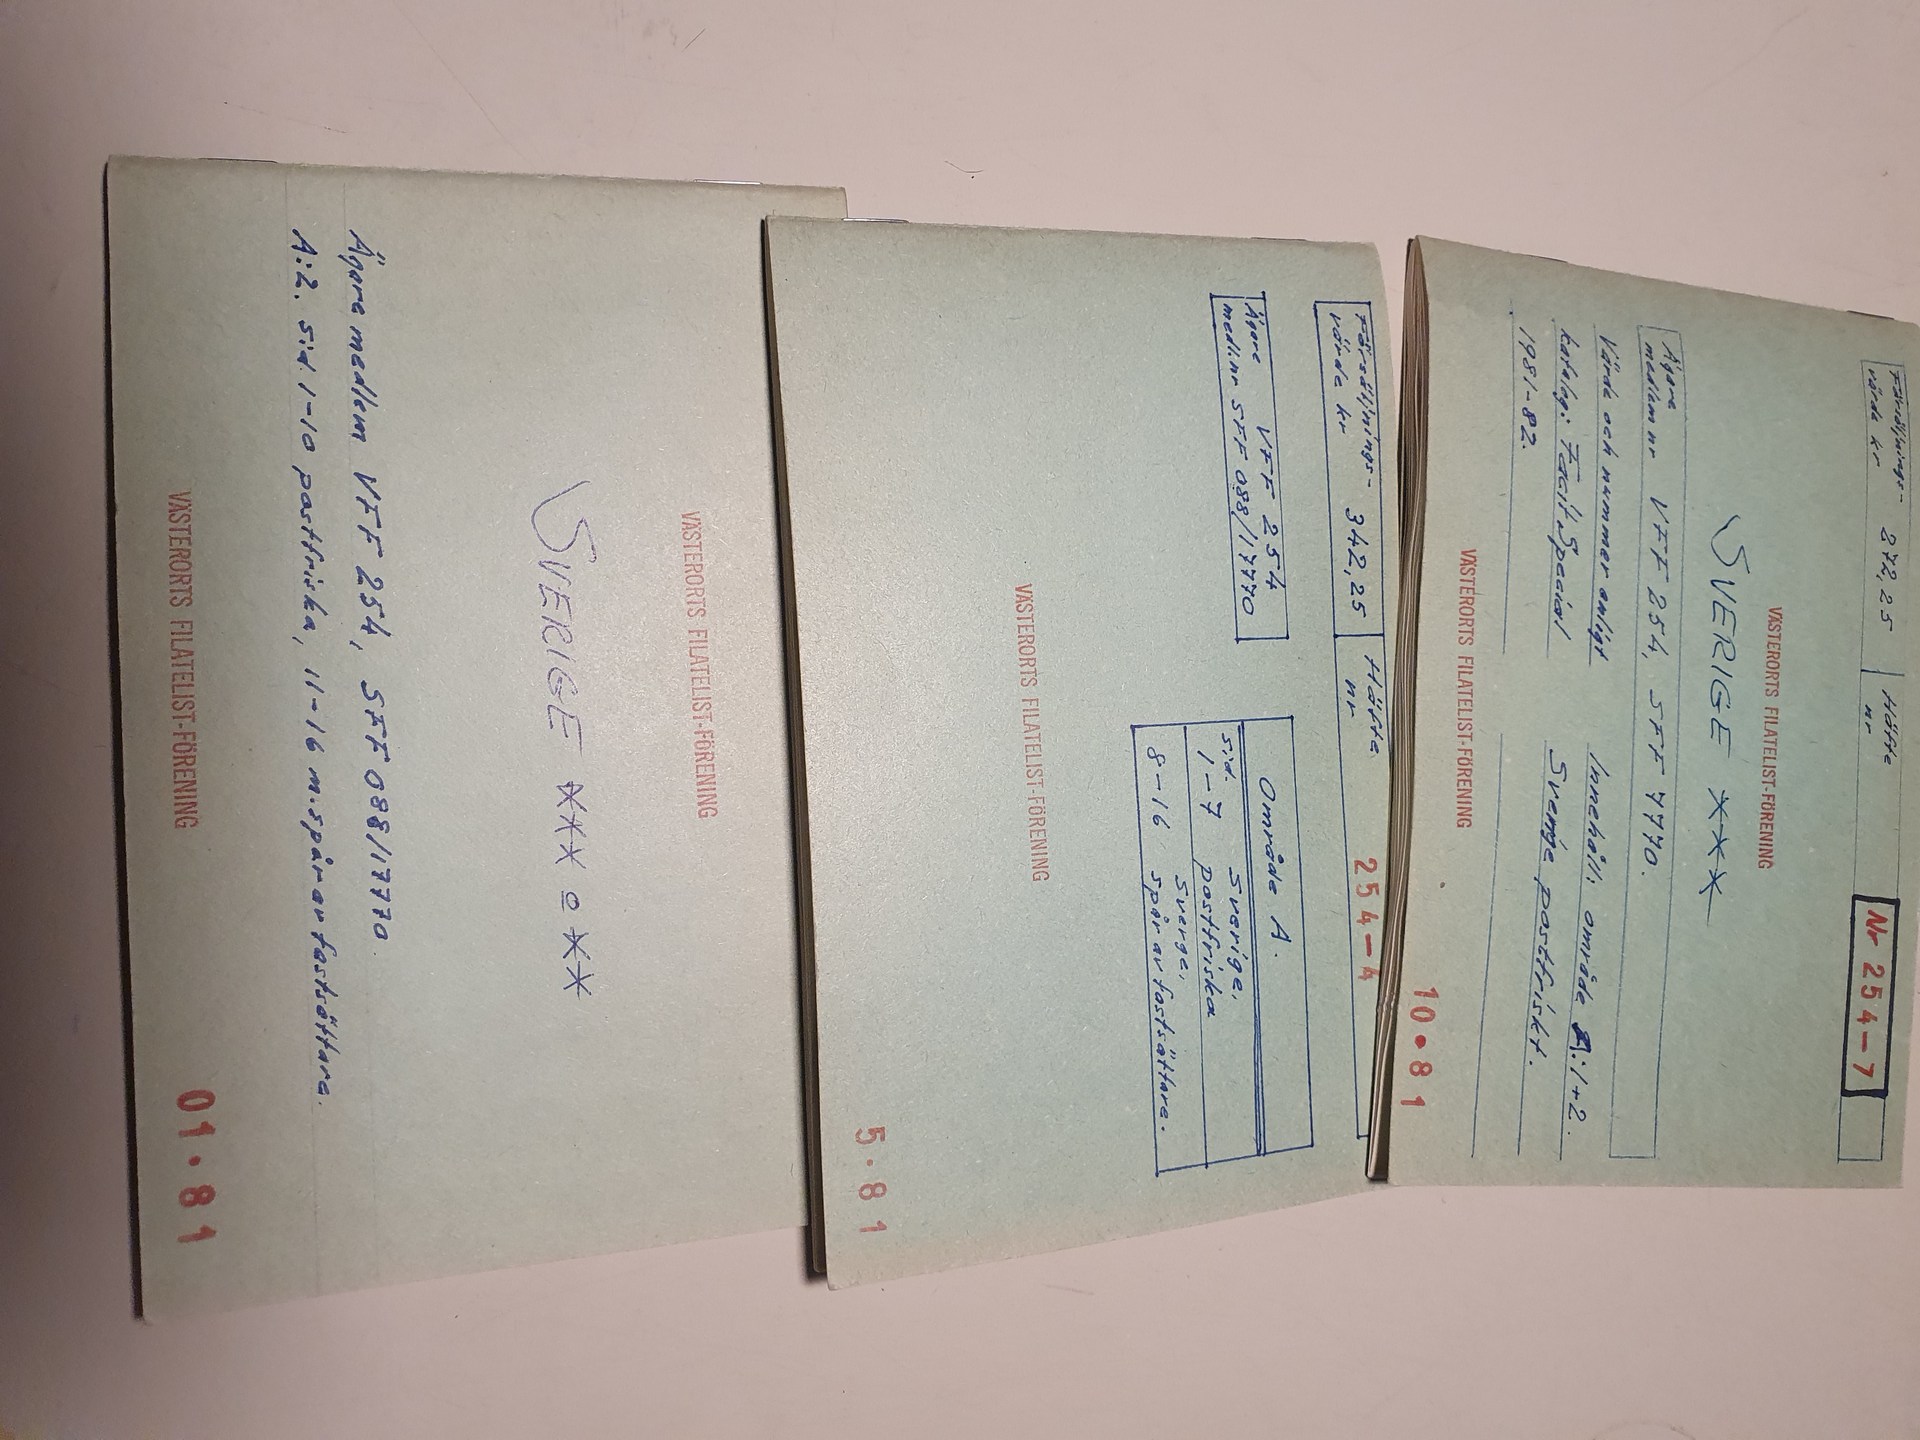 Försäljnings-
värde kr 272,25
Häfte
nr
Nr 254-7
VÄSTERORTS FILATELIST-FÖRENING
SVERIGE ***
Ägare
medlem nr VFF 254, SFF 7770.
Värde och nummer enligt
katalog: Facit Special
1981-82.
Innehåll: område A:1+2.
Sverige postfriskt.
VÄSTERORTS FILATELIST-FÖRENING
10•81
Försäljnings-
värde kr 342,25
Häfte
nr
254-4
Ägare VFF 254
medl.nr SFF 088/17770
Område A.
Sid. Sverige,
1-7 postfriska
Sverge,
8-16 spår av fastsättare.
VÄSTERORTS FILATELIST-FÖRENING
5.81
VÄSTERORTS FILATELIST-FÖRENING
SVERIGE *** o **
Ägare medlem VFF 254, SFF 088/17770.
A:2. Sid. 1-10 postfriska, 11-16 m. spår av fastsättare.
VÄSTERORTS FILATELIST-FÖRENING
01.81